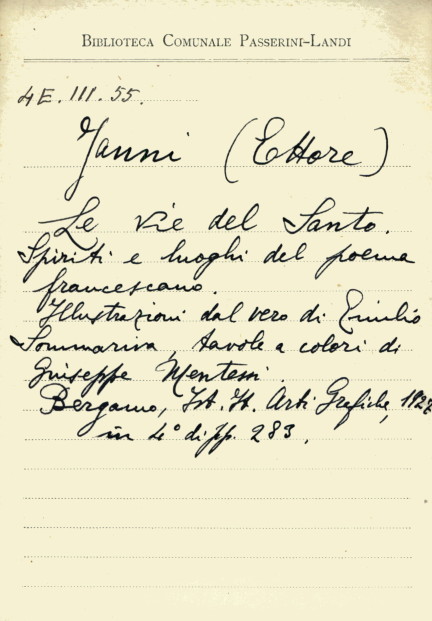 BIBLIOTECA COMUNALE PASSERINI-LANDI
4E.III.55.
Janni (Ettore)
Le vie del Santo.
Spiriti e luoghi del poema
francescano.
Illustrazioni dal vero di Emilio
Sommariva, tavole a colori di
Giuseppe Mentessi.
Bergamo, Ist. It. Arti Grafiche,
in 4° di pp. 283.